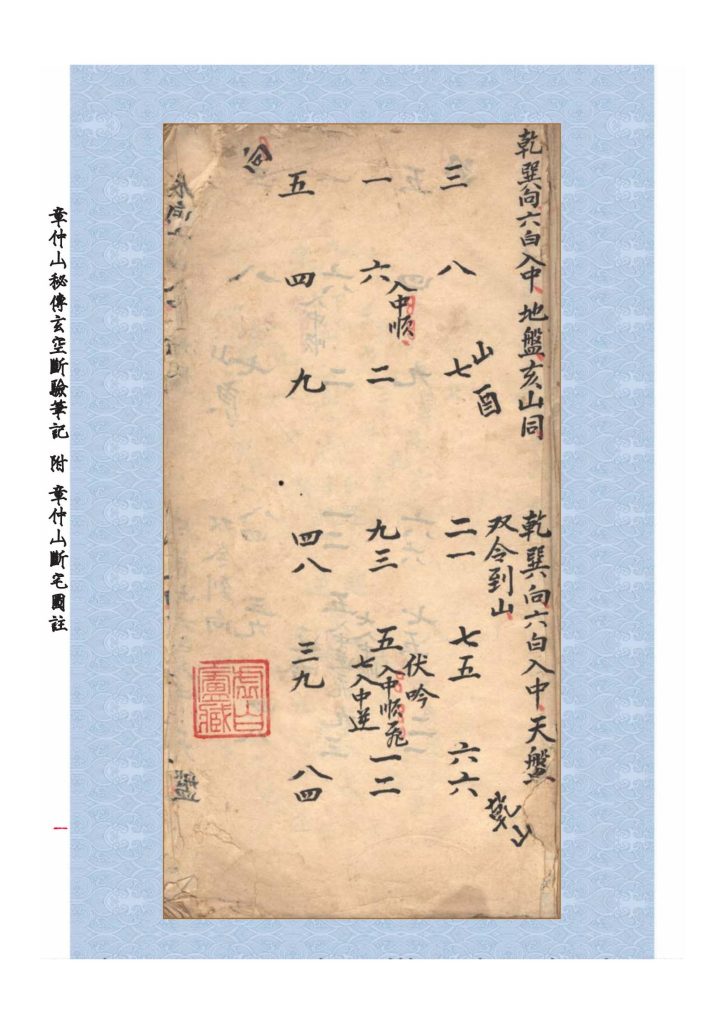 乾巽向六白入中 地盤亥山同
三 八 七
山酉
一 六 二
入中順
五 四 九
向
乾巽向六白入中 天盤
双令到山
二一 七五 六六
乾山
伏吟
九三 五入中順飛 一二
七入中逆
四八 三九 八四
虛白廬藏
章仲山秘傳玄空斷驗筆記 附 章仲山斷宅圖註
一